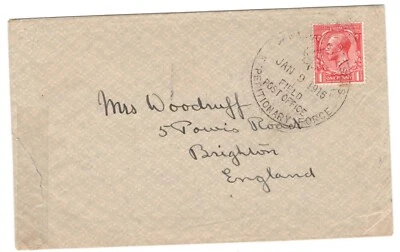 JAN 9 1918
FIELD
POST OFFICE
EXPEDITIONARY FORCE
1 1
Mrs Woodruff
5 Powis Road
Brighton
England